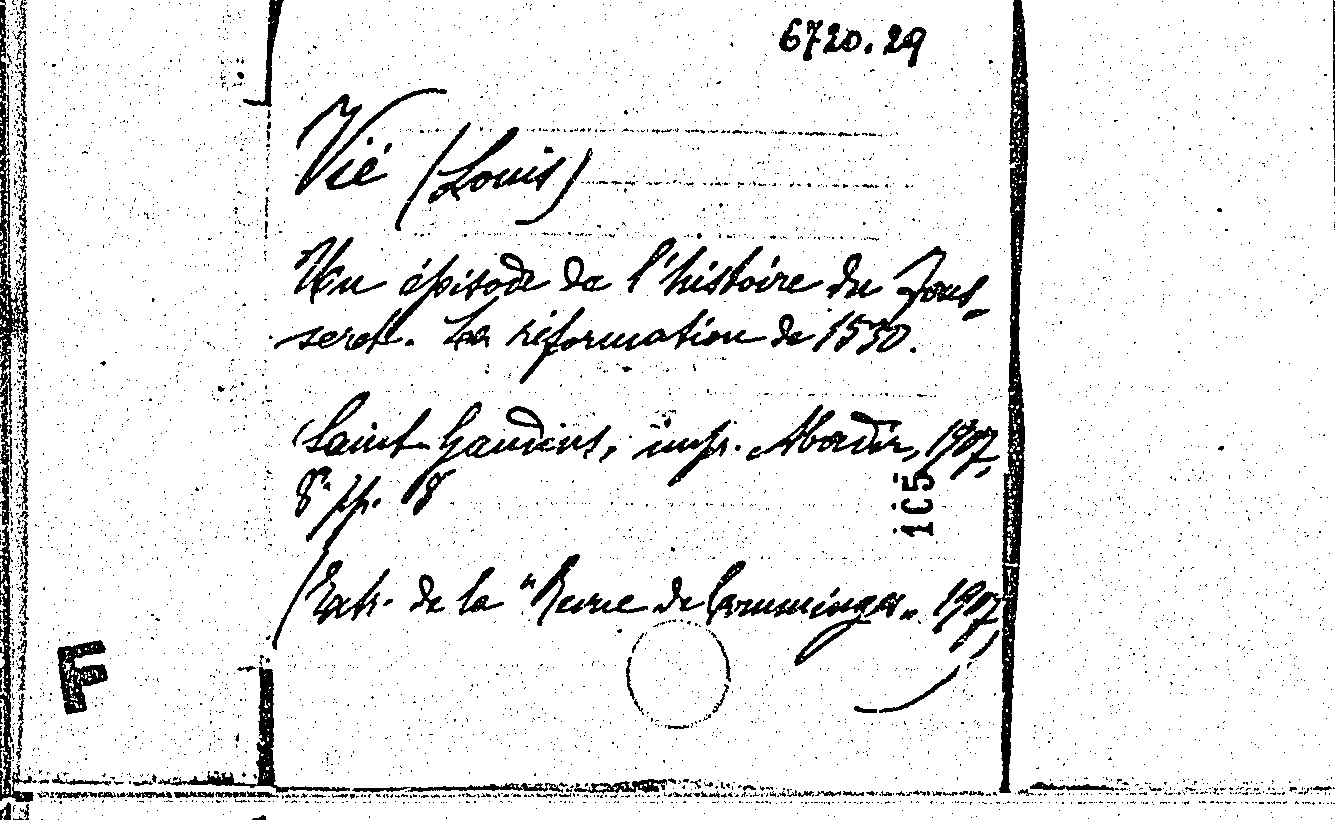 6720.29
Vié (Louis)
Un épisode de l'histoire du Fous-
seret. La réformation de 1530.
Saint-Gaudens, impr. Abadie, 1907,
8° pp. 18
(Extr. de la "Revue de Comminges„ 1907)
1C5
F